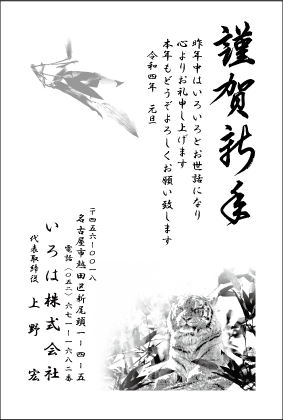 謹賀新年
昨年中はいろいろとお世話になり
心よりお礼申し上げます
本年もどうぞよろしくお願い致します
令和四年　元旦
〒四五六ー〇〇一八
名古屋市熱田区新尾頭一ー四ー五
電話（〇五二）六七一ー一六八二番
いろは株式会社
代表取締役　上野　宏